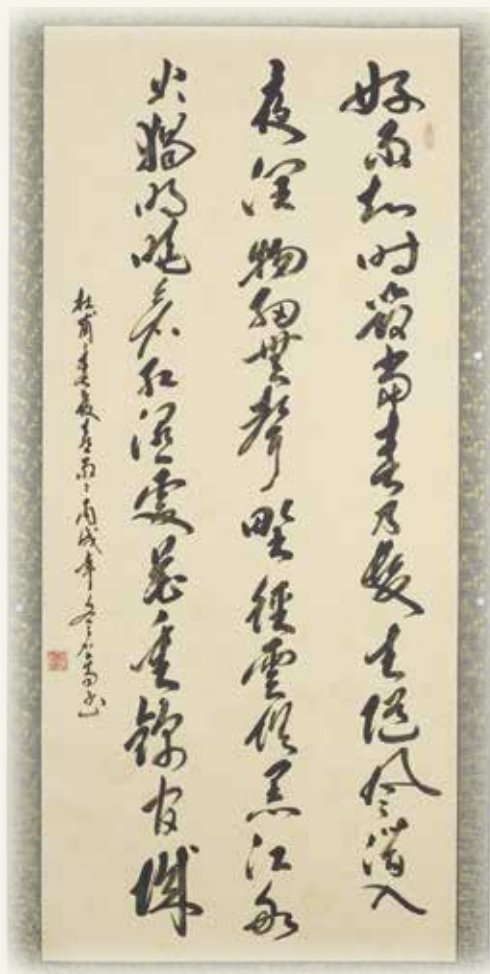 好雨知时節當春乃發生隨風潜入
夜潤物細無聲野徑雲俱黑江船
火獨明曉看紅濕處花重錦官城
杜甫春夜喜雨丙戌年冬书